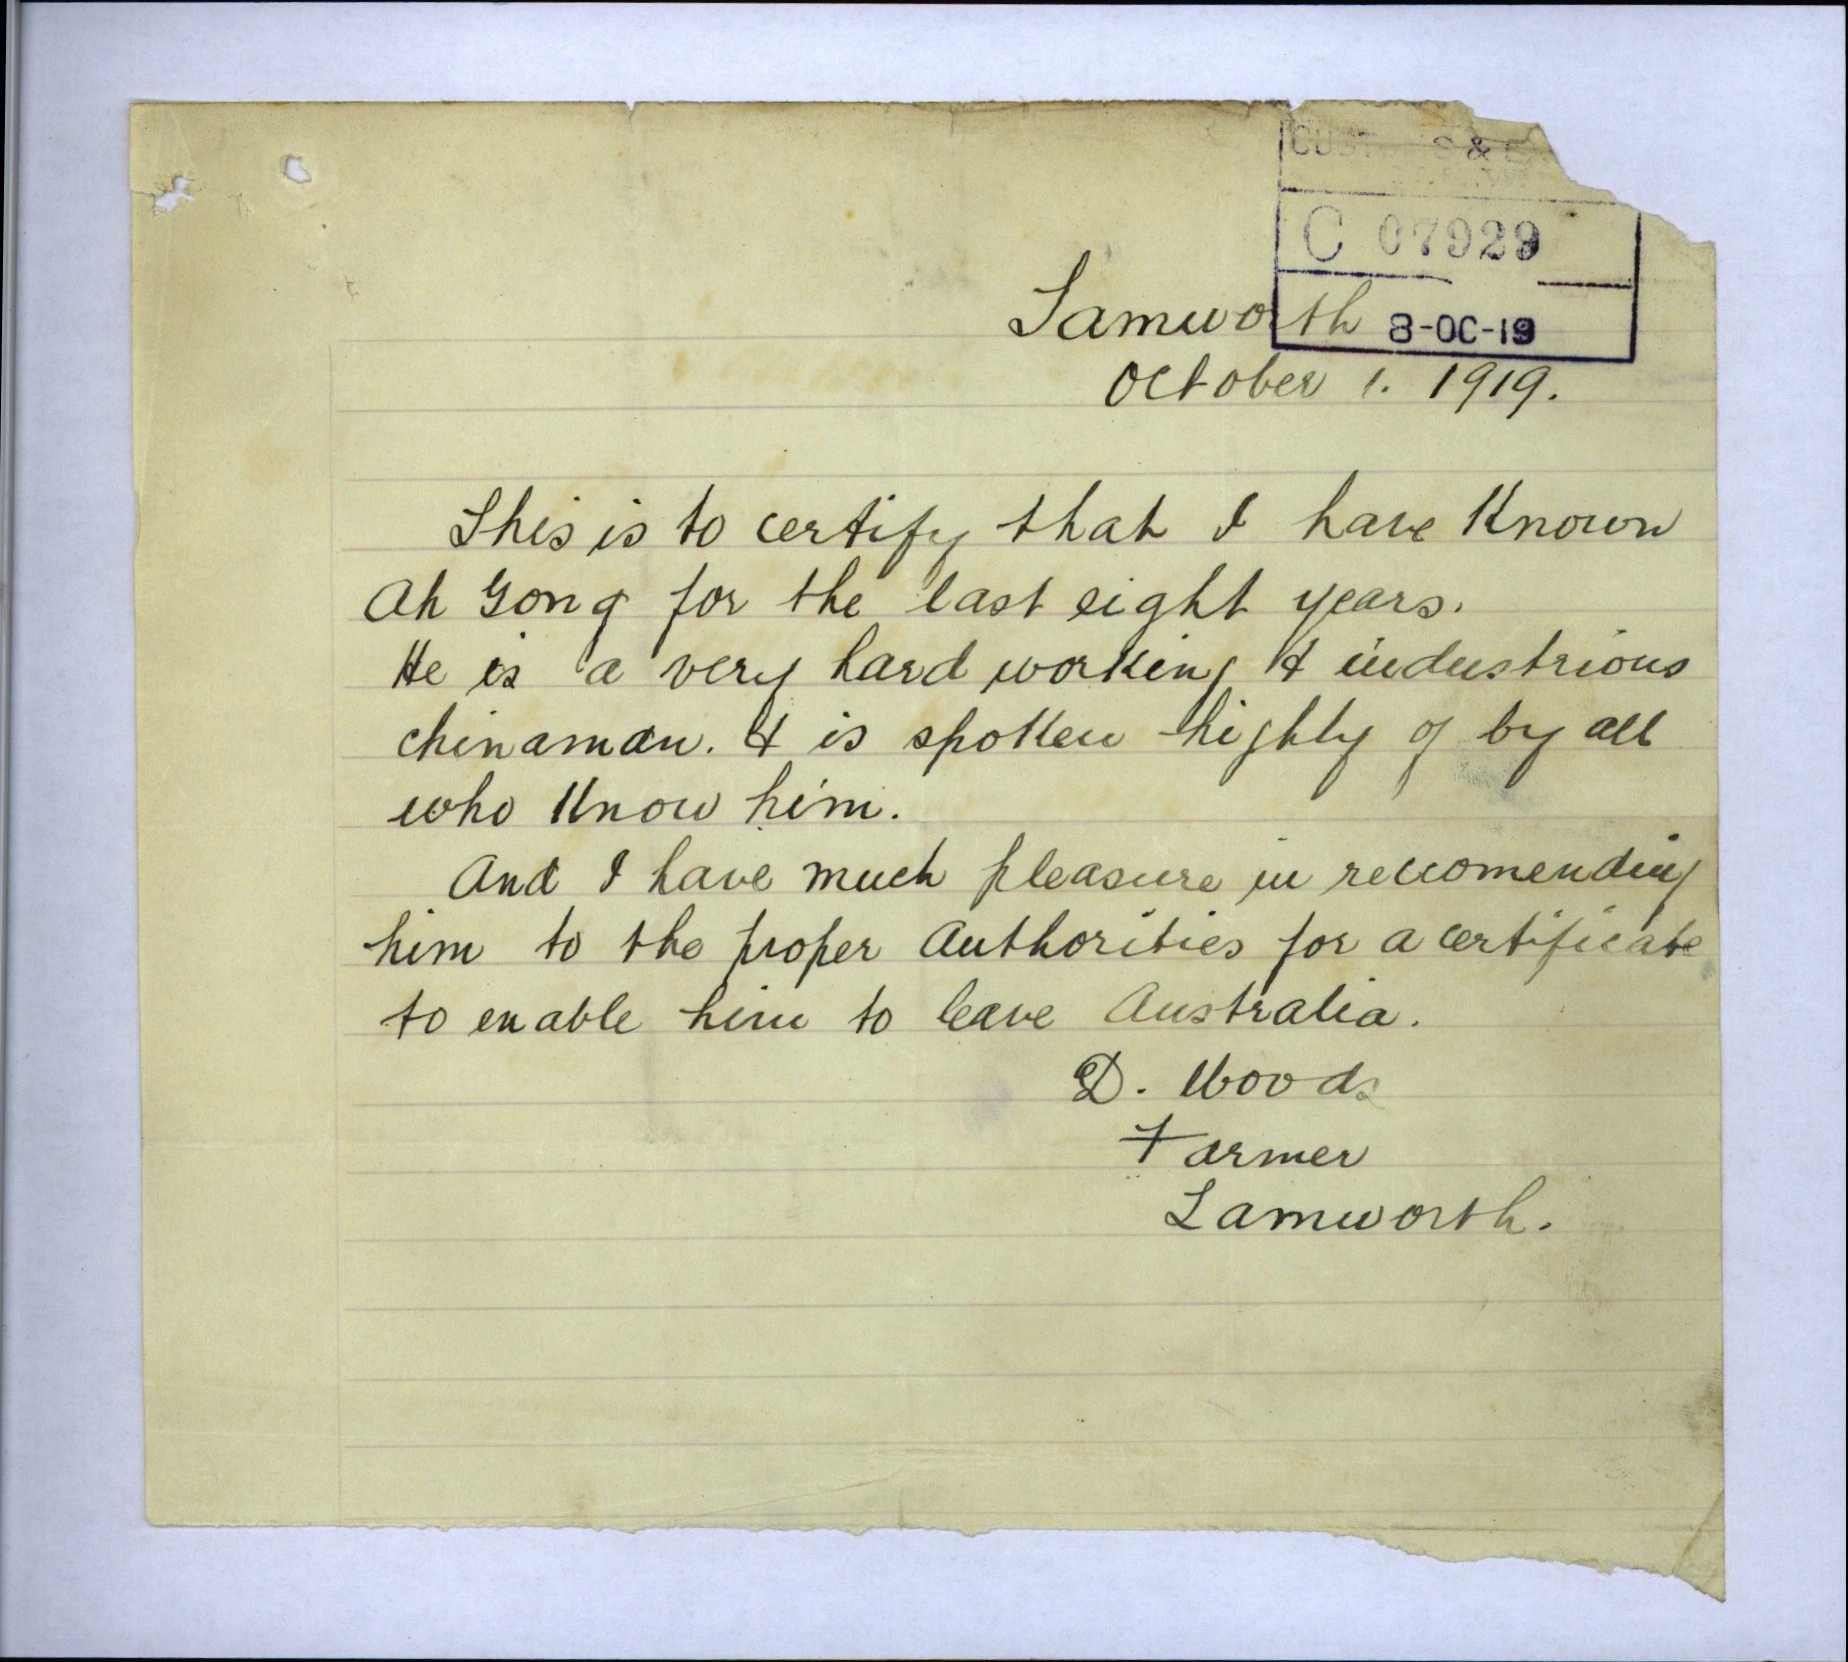 CUSTOMS & E
C 07929
8-OC-19
Tamworth
October 1. 1919.
This is to certify that I have Known
Ah Gong for the last eight years.
He is a very hard working & industrious
chinaman. & is spoken highly of by all
who Know him.
And I have much pleasure in reccomending
him to the proper Authorities for a certificate
to enable him to leave Australia.
D. Woods
Farmer
Tamworth.